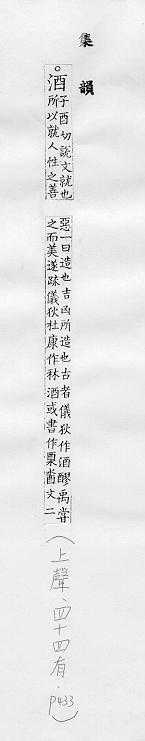 集韻
。酒
子酉切說文就也
所以就人性之善
惡一曰造也吉凶所造也古者儀狄作酒醪禹嘗
之而美遂疎儀狄杜康作秫酒或書作 文二
(上聲.四十四有.P433)